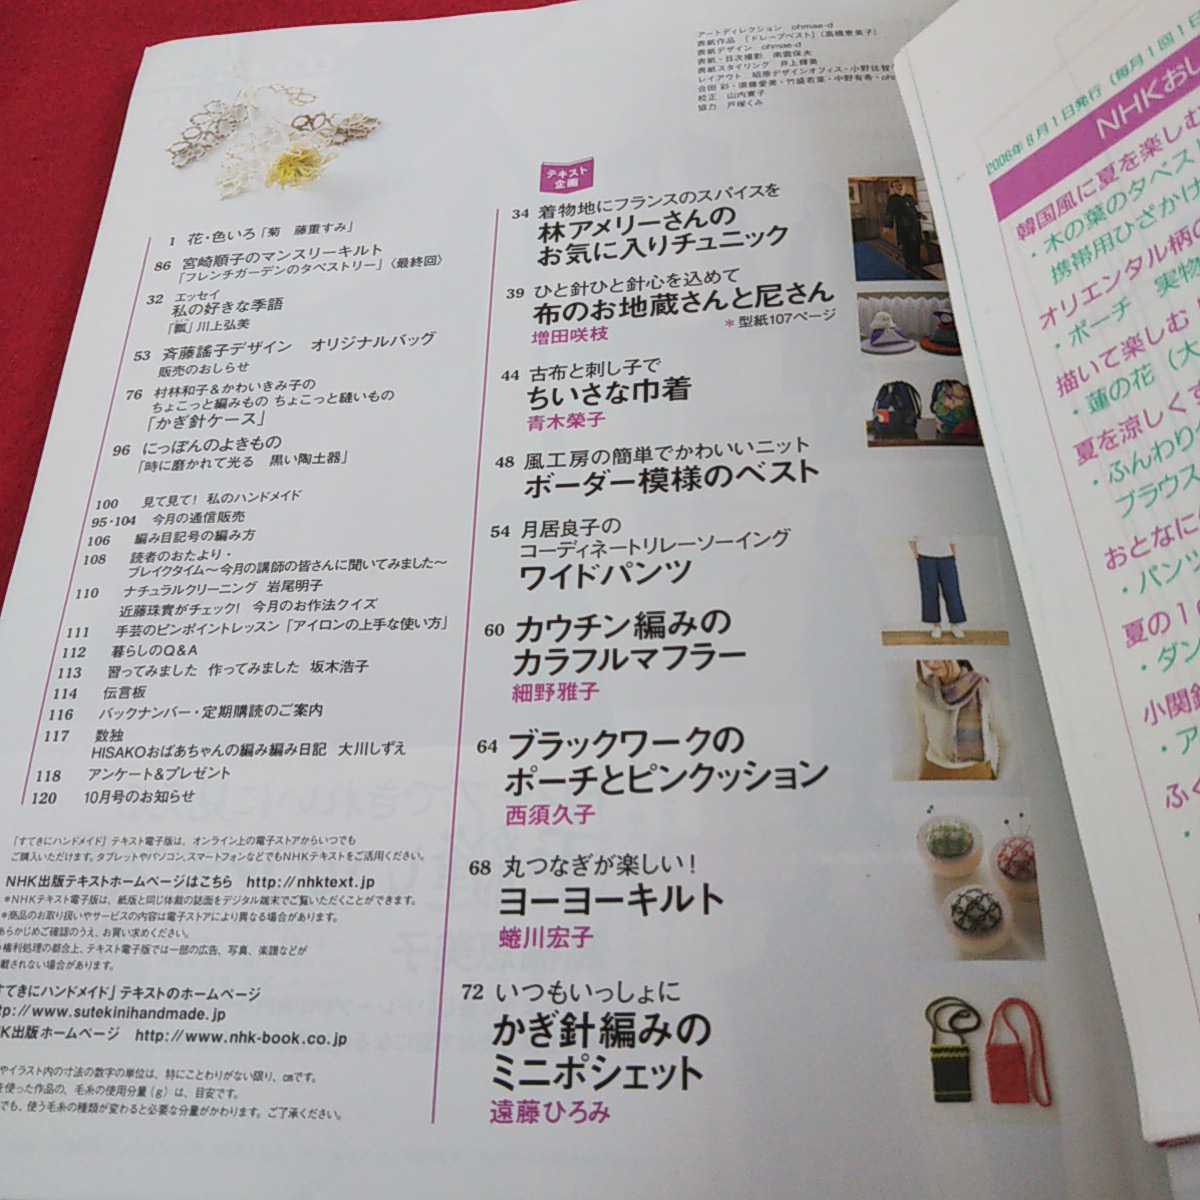 アートディレクション ohmae-d
表紙作品 「ドレープベスト」(高橋恵美子)
表紙デザイン ohmae-d
表紙・目次撮影 南雲保夫
表紙スタイリング 井上輝美
校正 山内寛子
協力 戸塚くみ
1 花・色いろ「菊 藤重すみ」
86 宮崎順子のマンスリーキルト
「フレンチガーデンのタペストリー」〈最終回〉
32 エッセイ
私の好きな季語
「瓢」川上弘美
53 斉藤謠子デザイン オリジナルバッグ
販売のおしらせ
76 村林和子&かわいきみ子の
ちょこっと編みもの ちょこっと縫いもの
「かぎ針ケース」
96 にっぽんのよきもの
「時に磨かれて光る 黒い陶土器」
100 見て見て! 私のハンドメイド
95・104 今月の通信販売
106 編み目記号の編み方
108 読者のおたより・
ブレイクタイム〜今月の講師の皆さんに聞いてみました〜
110 ナチュラルクリーニング 岩尾明子
近藤珠實がチェック! 今月のお作法クイズ
111 手芸のピンポイントレッスン「アイロンの上手な使い方」
112 暮らしのQ&A
113 習ってみました 作ってみました 坂木浩子
114 伝言板
116 バックナンバー・定期購読のご案内
117 数独
HISAKOおばあちゃんの編み編み日記 大川しずえ
118 アンケート&プレゼント
120 10月号のお知らせ
「すてきにハンドメイド」テキスト電子版は、オンライン上の電子ストアからいつでも
ご購入いただけます。タブレットやパソコン、スマートフォンなどでもNHKテキストをご活用ください。
NHK出版テキストホームページはこちら http://nhktext.jp
*NHKテキスト電子版は、紙版と同じ体裁の誌面をデジタル端末でご覧いただくことができます。
*商品のお取り扱いやサービスの内容は電子ストアにより異なる場合があります。
あらかじめご確認のうえ、お買い求めください。
権利処理の都合上、テキスト電子版では一部の広告、写真、楽譜などが
載されない場合があります。
すてきにハンドメイド」テキストのホームページ
tp://www.sutekinihandmade.jp
K出版ホームページ http://www.nhk-book.co.jp
やイラスト内の寸法の数字の単位は、特にことわりがない限り、㎝です。
を使った作品の、毛糸の使用分量(g)は、目安です。
でも、使う毛糸の種類が変わると必要な分量がかわります。ご了承ください。
テキスト
企画
34 着物地にフランスのスパイスを
林アメリーさんの
お気に入りチュニック
39 ひと針ひと針心を込めて
布のお地蔵さんと尼さん
増田咲枝 *型紙107ページ
44 古布と刺し子で
ちいさな巾着
青木榮子
48 風工房の簡単でかわいいニット
ボーダー模様のベスト
54 月居良子の
コーディネートリレーソーイング
ワイドパンツ
60 カウチン編みの
カラフルマフラー
細野雅子
64 ブラックワークの
ポーチとピンクッション
西須久子
68 丸つなぎが楽しい!
ヨーヨーキルト
蜷川宏子
72 いつもいっしょに
かぎ針編みの
ミニポシェット
遠藤ひろみ
2006年8月1日発行(毎月1回1日
NHKおし
韓国風に夏を楽しむ
・木の葉のタペスト
携帯用ひざかけ
オリエンタル柄の
・ポーチ 実物
描いて楽しむ
・蓮の花(大
夏を涼しくす
・ふんわり
ブラウス
おとなに
・パンツ
夏の1
・ダン
小関鈴
・ア
ふく